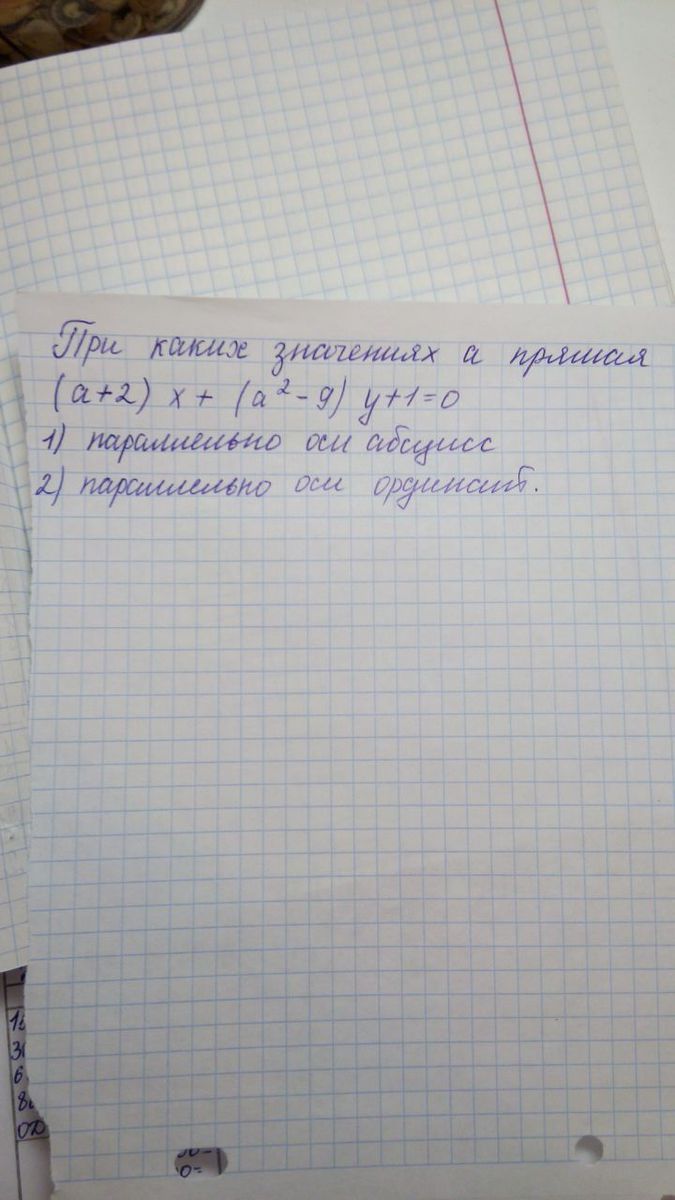 При каких значениях а прямая
(a+2) x + (a²-9) y+1=0
1) параллельно оси абсцисс
2) параллельно оси ординат.